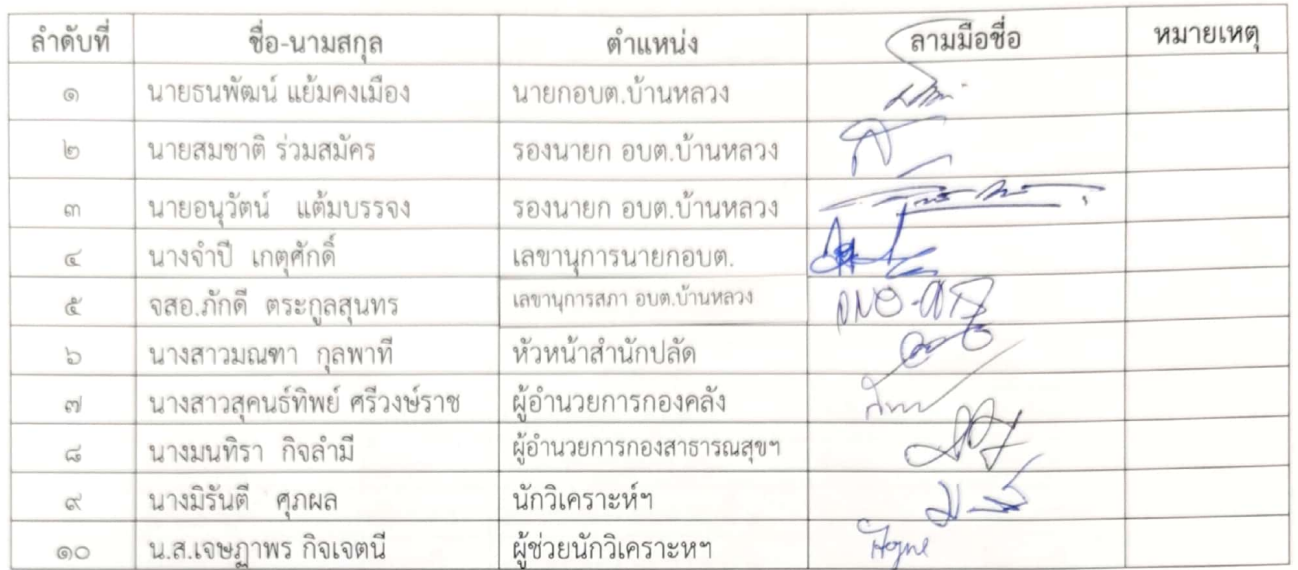 ลำดับที่ ชื่อ-นามสกุล ตำแหน่ง ลามมือชื่อ หมายเหตุ
๑ นายธนพัฒน์ แย้มคงเมือง นายกอบต.บ้านหลวง
๒ นายสมชาติ ร่วมสมัคร รองนายก อบต.บ้านหลวง
๓ นายอนุวัตน์ แต้มบรรจง รองนายก อบต.บ้านหลวง
๔ นางจำปี เกตุศักดิ์ เลขานุการนายกอบต.
๕ จสอ.ภักดี ตระกูลสุนทร เลขานุการสภา อบต.บ้านหลวง
๖ นางสาวมณฑา กุลพาที หัวหน้าสำนักปลัด
๗ นางสาวสุคนธ์ทิพย์ ศรีวงษ์ราช ผู้อำนวยการกองคลัง
๘ นางมนทิรา กิจลำมี ผู้อำนวยการกองสาธารณสุขฯ
๙ นางมิรันตี ศุภผล นักวิเคราะห์ฯ
๑๐ น.ส.เจษฎาพร กิจเจตนี ผู้ช่วยนักวิเคราะหฯ